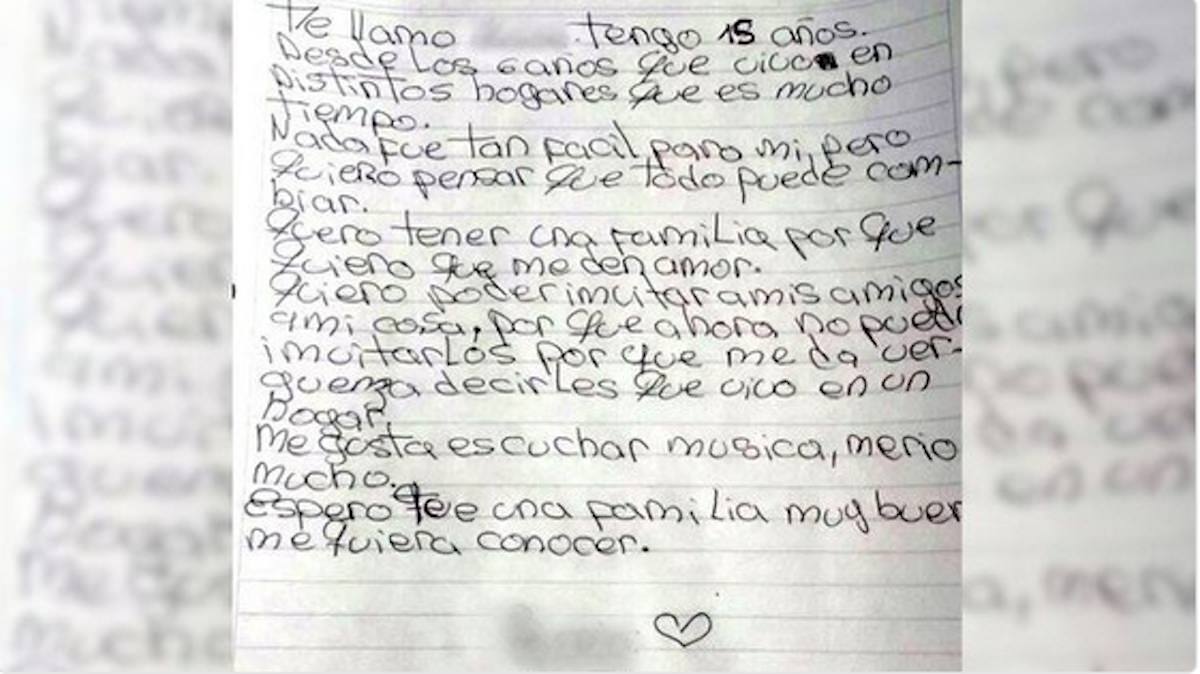 Me llamo tengo 15 años.
Desde Los 6 años que vivo en
Distintos hogares que es mucho
Tiempo.
Nada fue tan facil para mi, pero
quiero pensar que todo puede cam-
biar.
quero tener una familia por que
quiero que me den amor.
quiero poder imvitar a mis amigos
a mi casa, por que ahora no puedo
imvitarlos por que me da ver-
guenza decirles que vivo en un
hogar.
Me gusta escuchar musica, me rio
mucho.
espero que una familia muy buen
me quiera conocer.